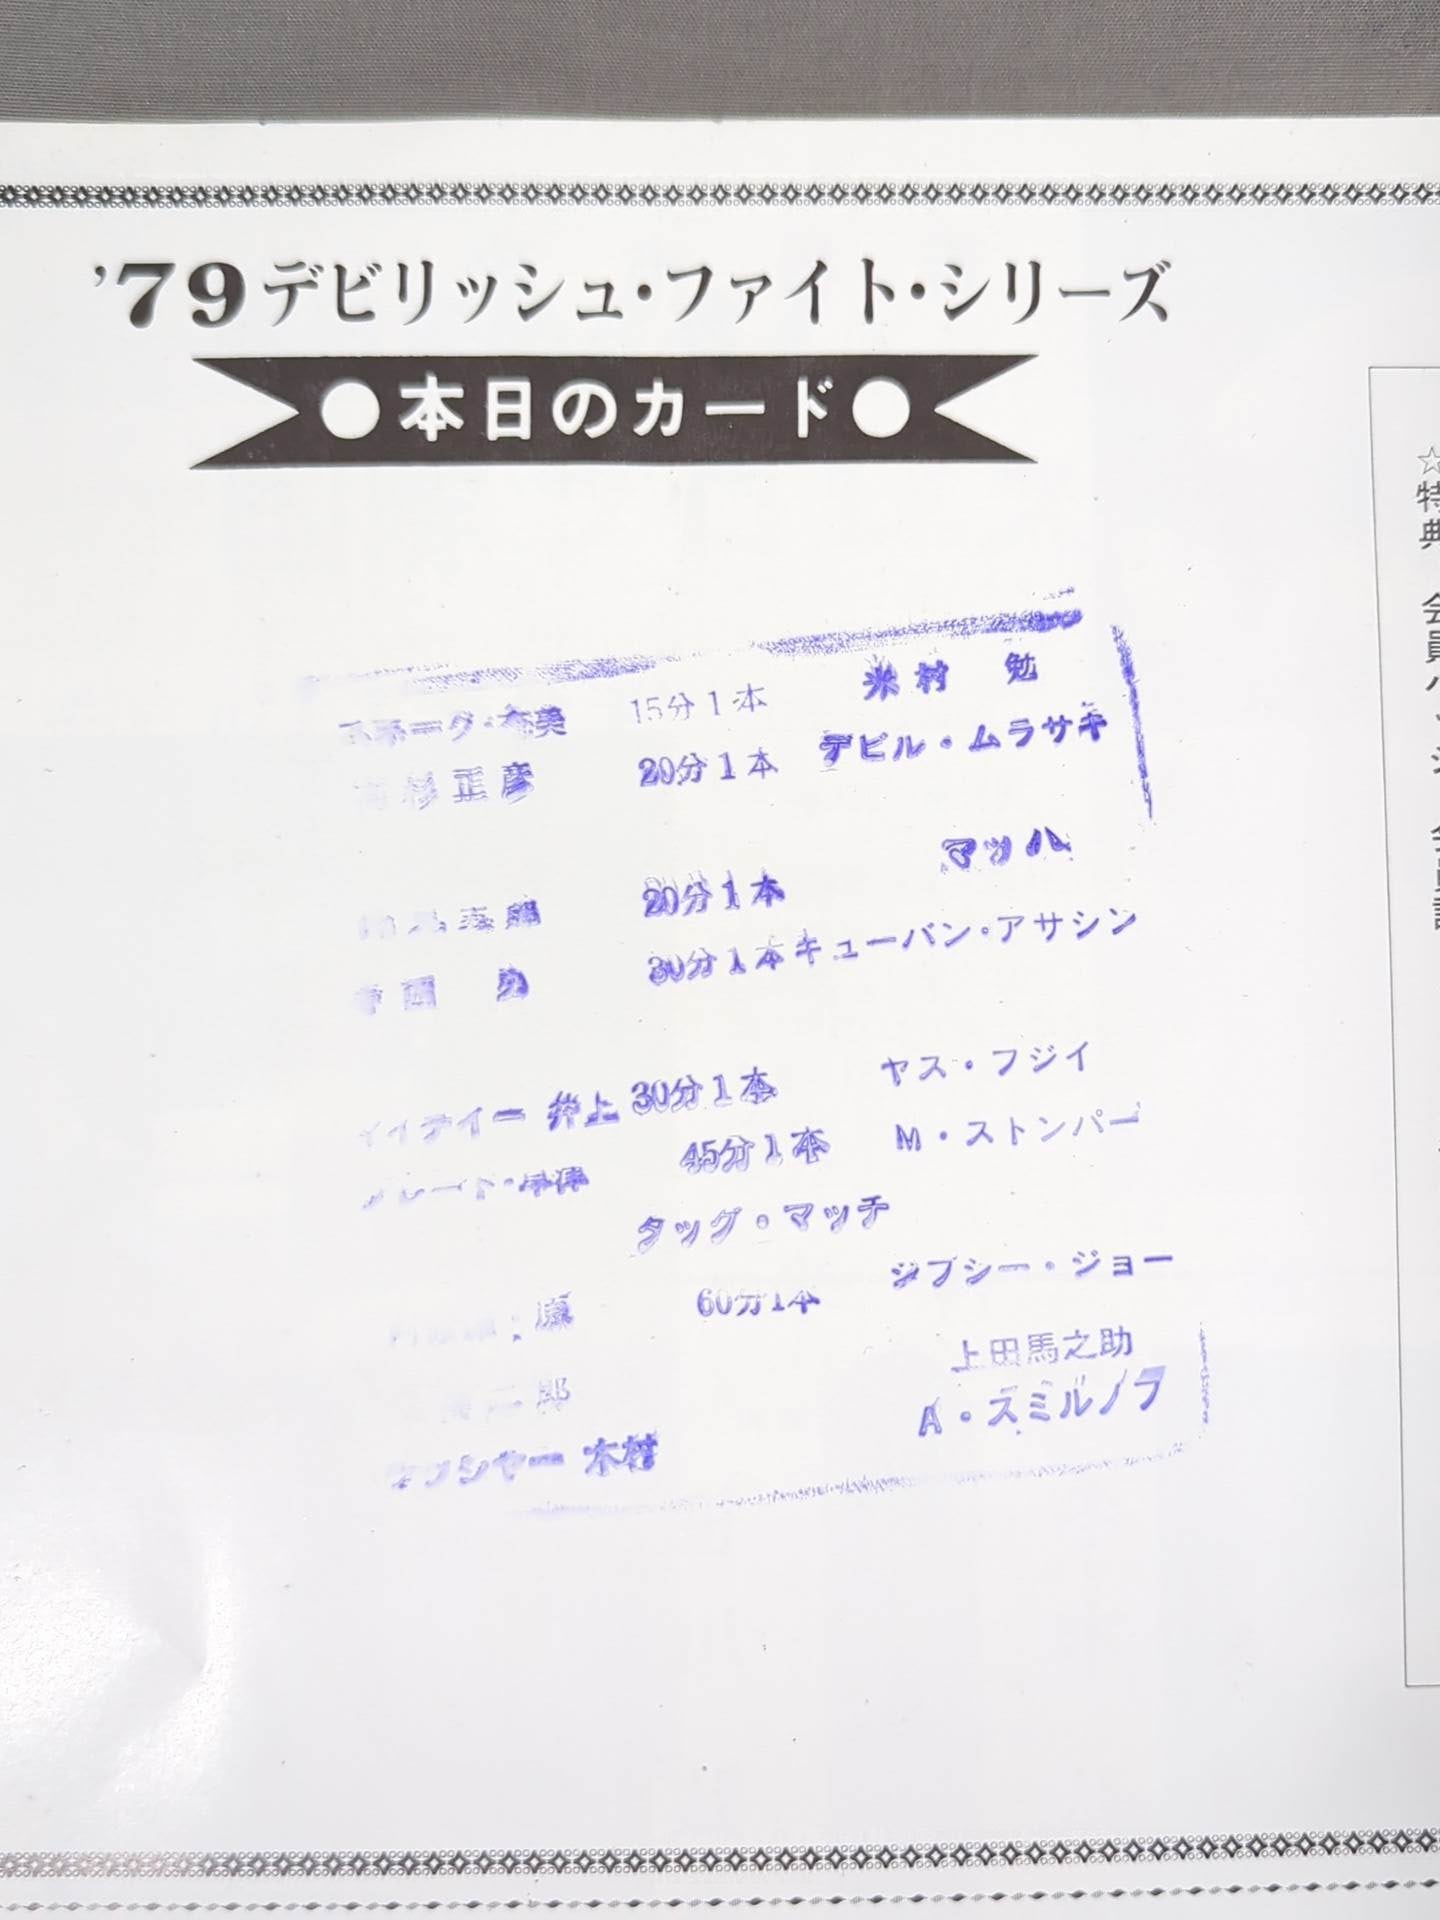 '79デビリッシュ・ファイト・シリーズ
●本日のカード●
スネーク・奄美 15分1本 米村 勉
高杉正彦 20分1本 デビル・ムラサキ
20分1本 マッハ
寺西 勇 30分1本 キューバン・アサシン
マイティー 井上 30分1本 ヤス・フジイ
グレート・草津 45分1本 M・ストンパー
タッグ・マッチ
原 60分1本 ジプシー・ジョー
二郎 上田馬之助
ラッシャー 木村 A・スミルノフ
☆特典 会員